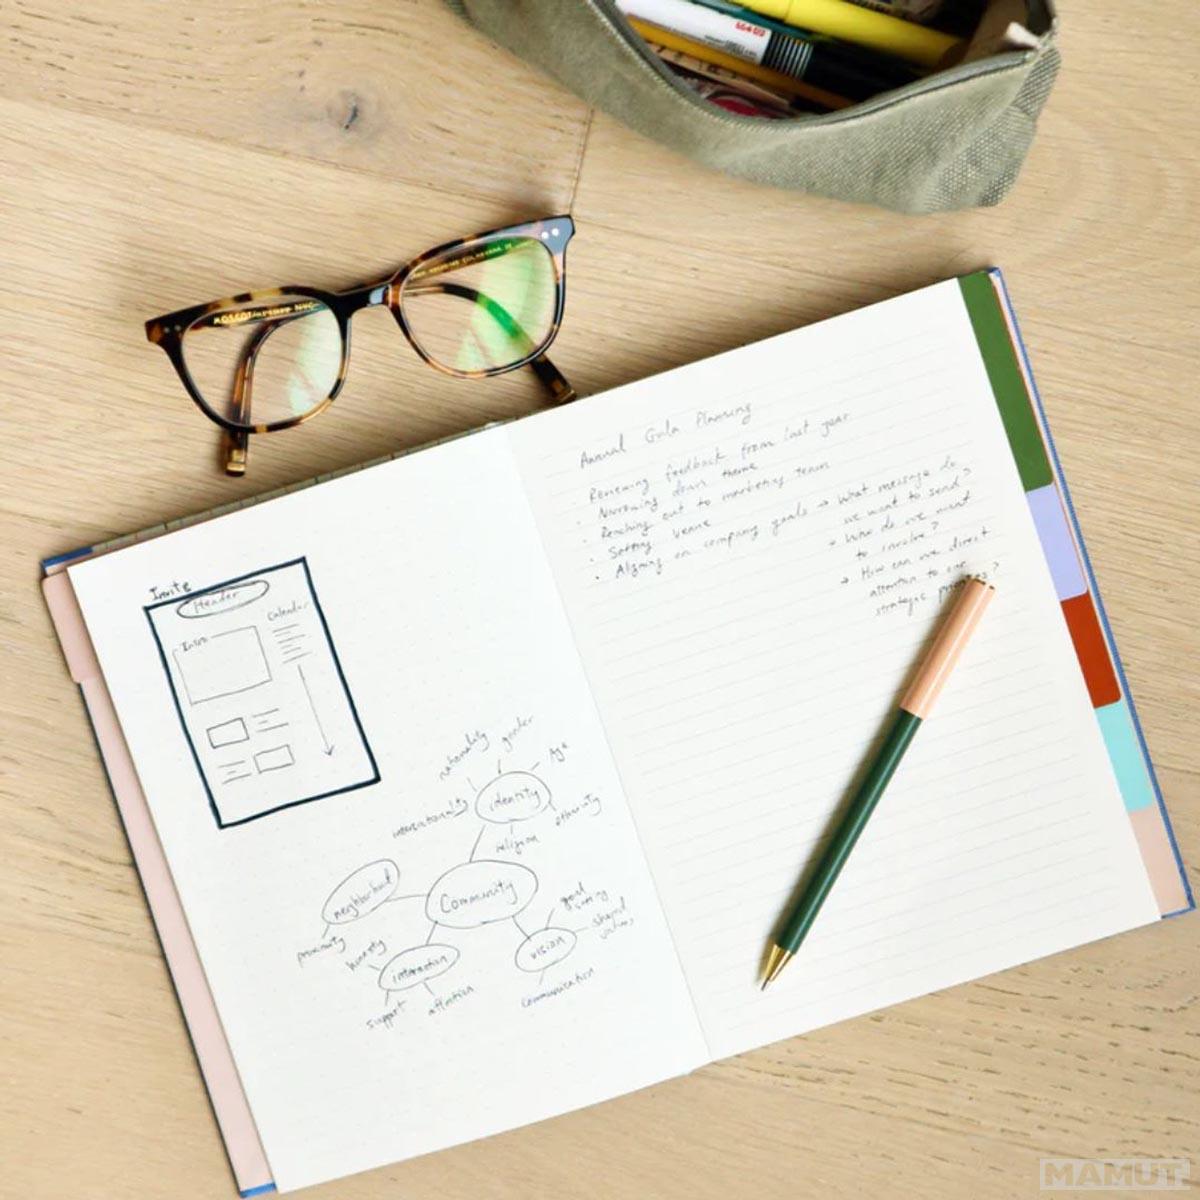 MOSCOT
Invite
Header
Intro
Calendar
nationality
gender
Age
intersectionality
identity
ethnicity
religion
neighborhood
Community
proximity
honesty
interaction
support
attention
vision
goal
setting
shared
values
communication
Annual Gala Planning
Reviewing feedback from last year
· Narrowing down theme
· Reaching out to marketing team
· Setting venue
· Aligning on company goals → What message do
we want to send?
→ Who do we want
to involve?
→ How can we direct
attention to our
strategic
MAMUT